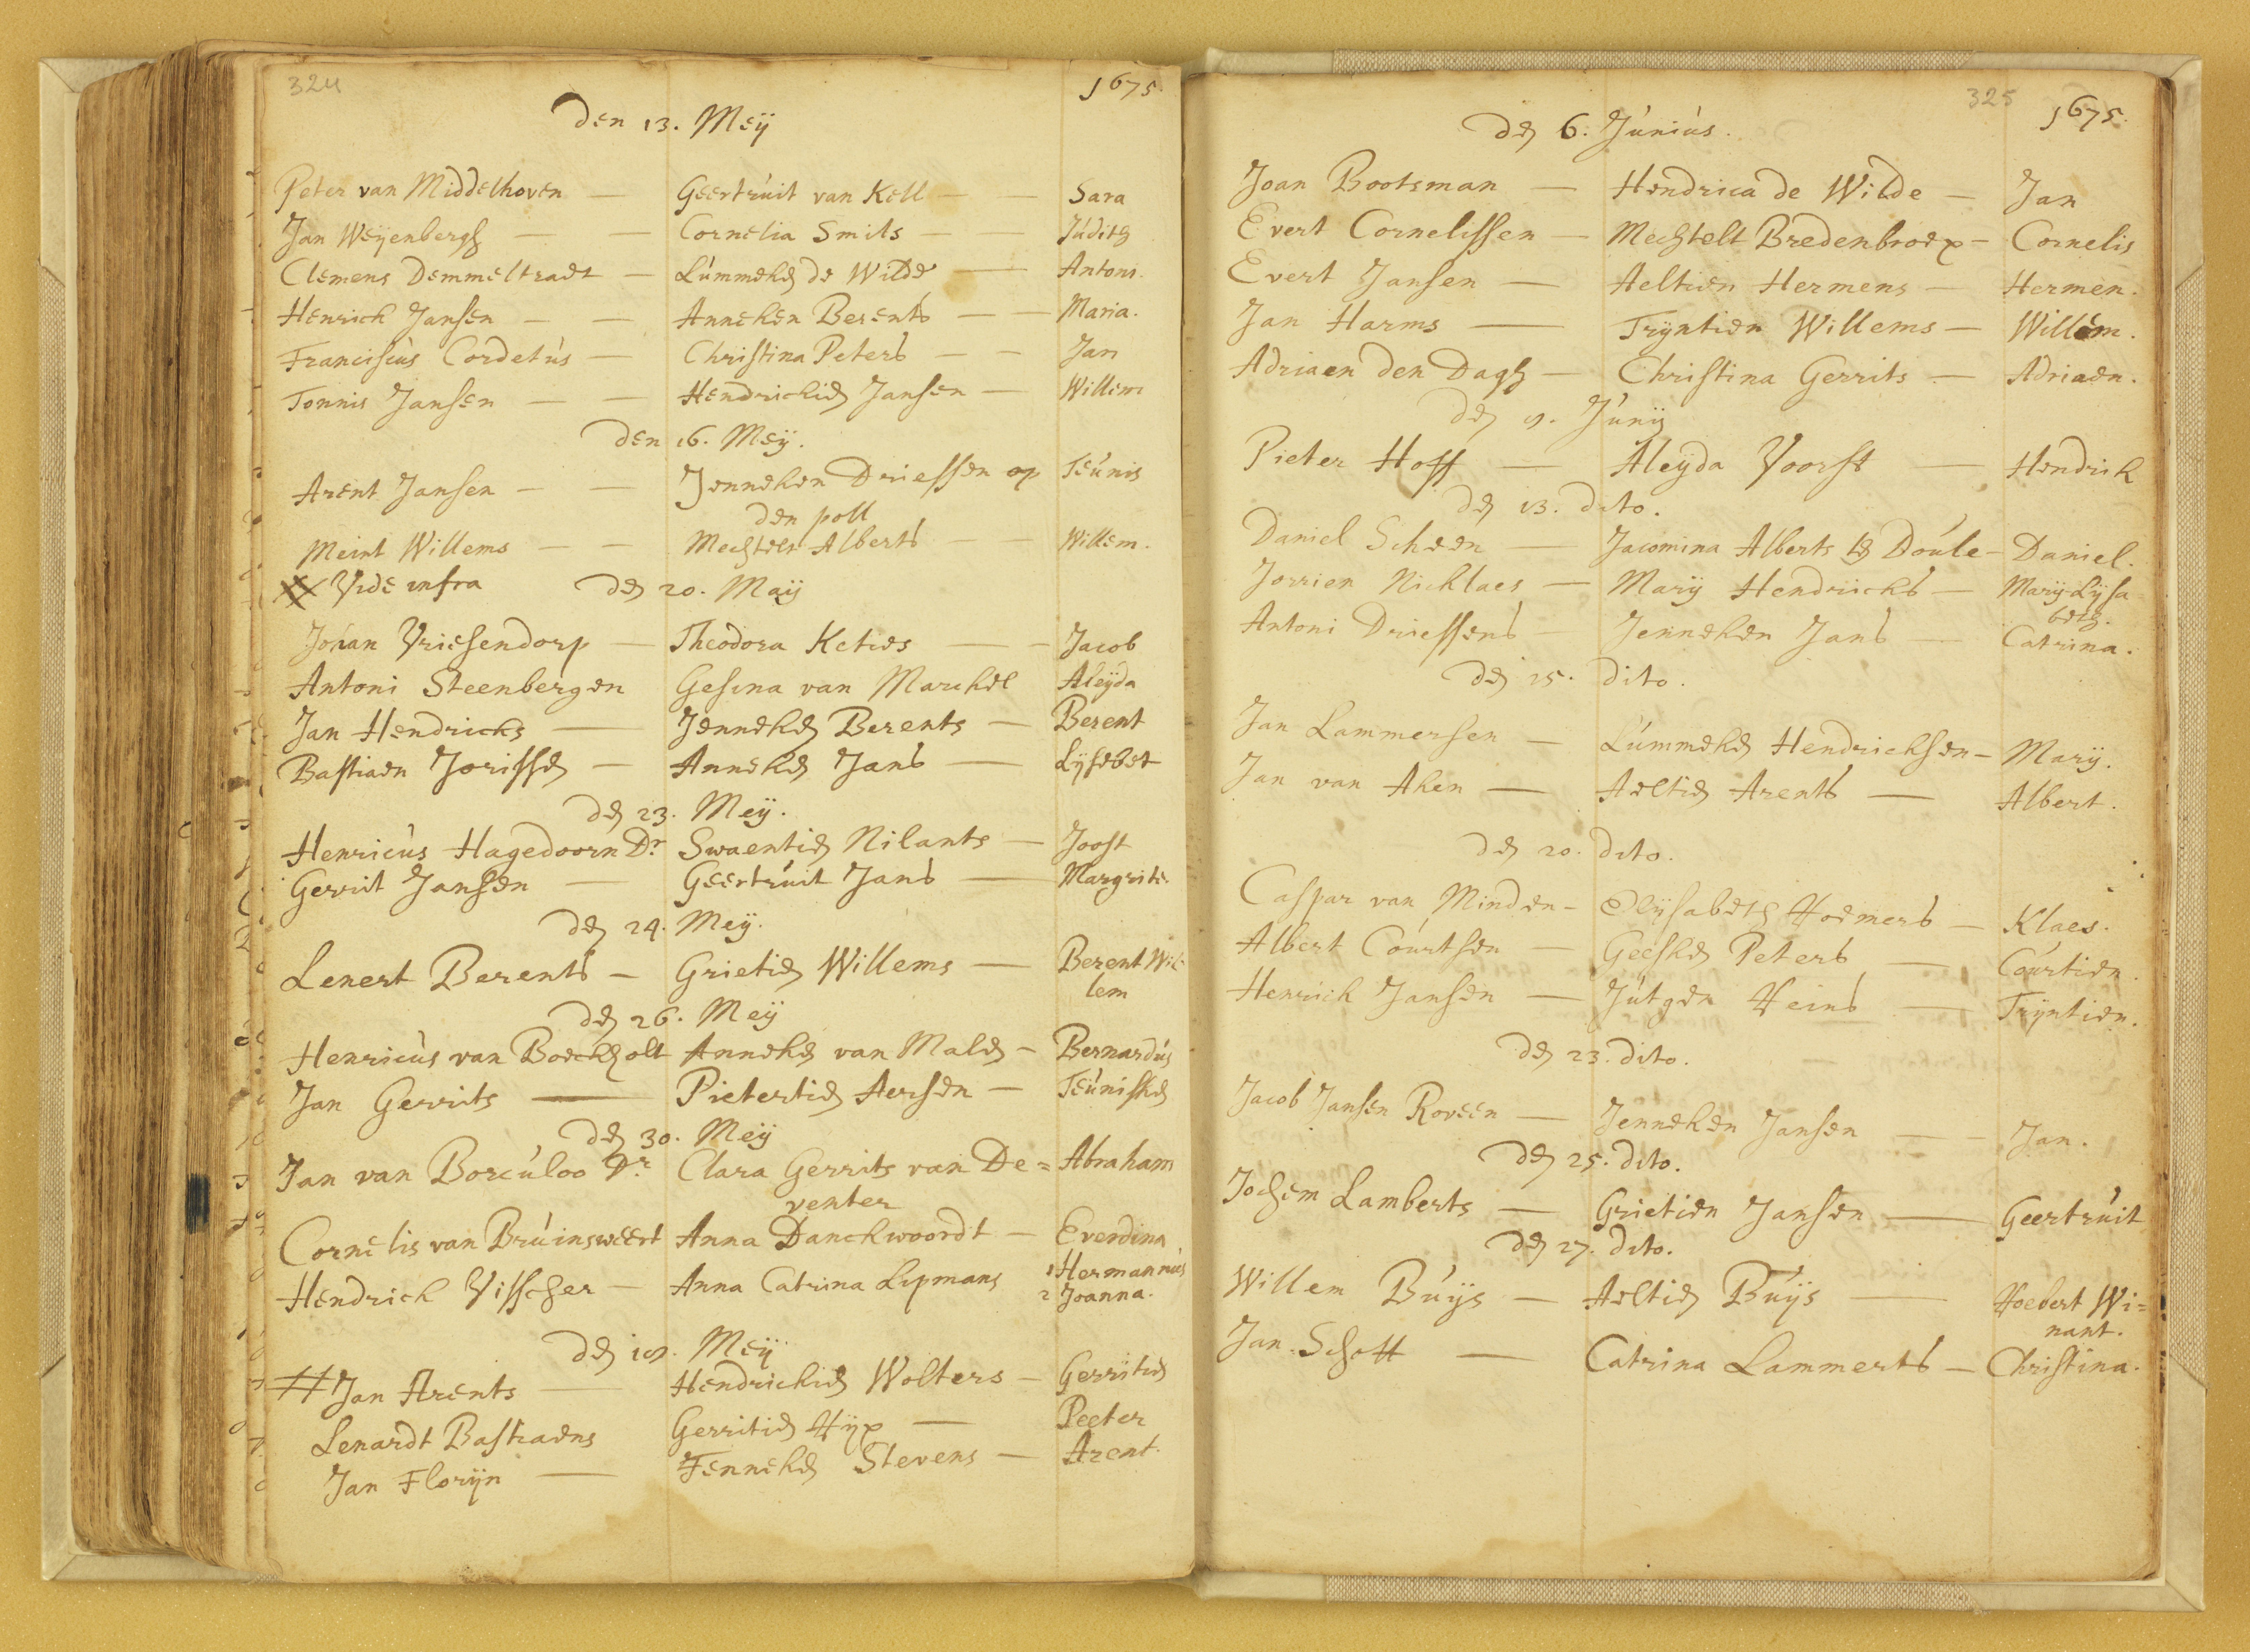 324
1675.
Den 13. Meÿ
Peter van Middelhoven — Geertruit van Kell — — Sara
Jan Weÿenbergh — — Cornelia Smits — — Judith
Clemens Demmeltradt — Lummeken de Wilde — Antoni.
Henrich Jansen — — Anneken Berents — — Maria.
Franciscus Cordetus — Christina Peters — — Jan
Tonnis Jansen — — Hendrickien Jansen — Willem
Den 16. Meÿ.
Arent Jansen — — Jenneken Driessen op Teunis
den poll
Meint Willems — — Mechtelt Alberts — — Willem.
Vide infra
Den 20. Maÿ
Johan Vriesendorp — Theodora Keties — — Jacob
Antoni Steenbergen Gesina van Marckel Aleÿda
Jan Hendricks — Jenneken Berents — Berent
Bastiaen Jorissen — Anneken Jans — Lÿsebet
Den 23. Meÿ.
Henricus Hagedoorn Dr. Swaentien Nilants — Joost
Gerrit Jansen — Geertruit Jans — Margrite
Den 24. Meÿ.
Lenert Berents — Grietien Willems — Berent Wil-
lem
Den 26. Meÿ
Henricus van Boeckholt Anneken van Malen — Bernardus
Jan Gerrits — Pietertien Aersen — Teunisken
Den 30. Meÿ
Jan van Borculoo Dr. Clara Gerrits van De= Abraham
venter
Cornelis van Bruinsweert Anna Danckwoordt — Everdina
Hendrick Visscher — Anna Catrina Lipmans 1 Hermannus
2 Joanna.
Den 19. Meÿ
# Jan Arents — Hendrickien Wolters — Gerritien
Lenardt Bastiaens Gerritien Hÿp — Peeter
Jan Florÿn — Fenneken Stevens — Arent.
325
1675.
Den 6. Junius.
Joan Bootsman — Hendrica de Wilde — Jan
Evert Cornelissen — Mechtelt Bredenbroex — Cornelis
Evert Jansen — Aeltien Hermens — Hermen.
Jan Harms — Trÿntien Willems — Willem.
Adriaen den Dagh — Christina Gerrits — Adriaen.
Den 9. Junÿ
Pieter Hoff — Aleÿda Voorst — Hendrik
Den 13. dito.
Daniel Scheen — Jacomina Alberts Doule — Daniel.
Jorrien Nicklaes — Marÿ Hendricks — Marÿ Lÿsa-
beth.
Antoni Driessens — Jenneken Jans — Catrina.
Den 15. dito.
Jan Lammersen — Lummeken Hendricksen — Marÿ.
Jan van Aken — Aeltien Arents — Albert.
Den 20. dito.
Caspar van Minden — Elÿsabeth Hoemers — Klaes.
Albert Courtsen — Geesken Peters — Courtien.
Henrick Jansen — Jutgen Heins — Trÿntien.
Den 23. dito.
Jacob Jansen Roveen — Jenneken Jansen — — Jan.
Den 25. dito.
Jochem Lamberts — Grietien Jansen — Geertruit
Den 27. dito.
Willem Buÿs — Aeltien Buÿs — Hoebert Wi=
nant.
Jan Schott — Catrina Lammerts — Christina.